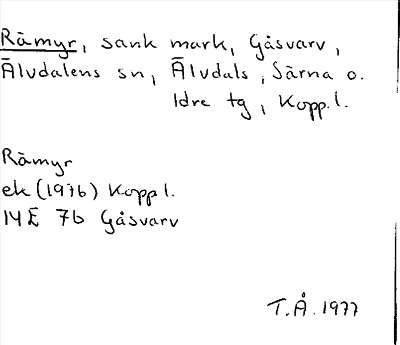 Råmyr, sank mark, Gåsvarv,
Älvdalens sn, Älvdals, Särna o.
Idre tg, Kopp.l.
Råmyr
ek (1976) Koppl.
14E 7b Gåsvarv
T.Å. 1977